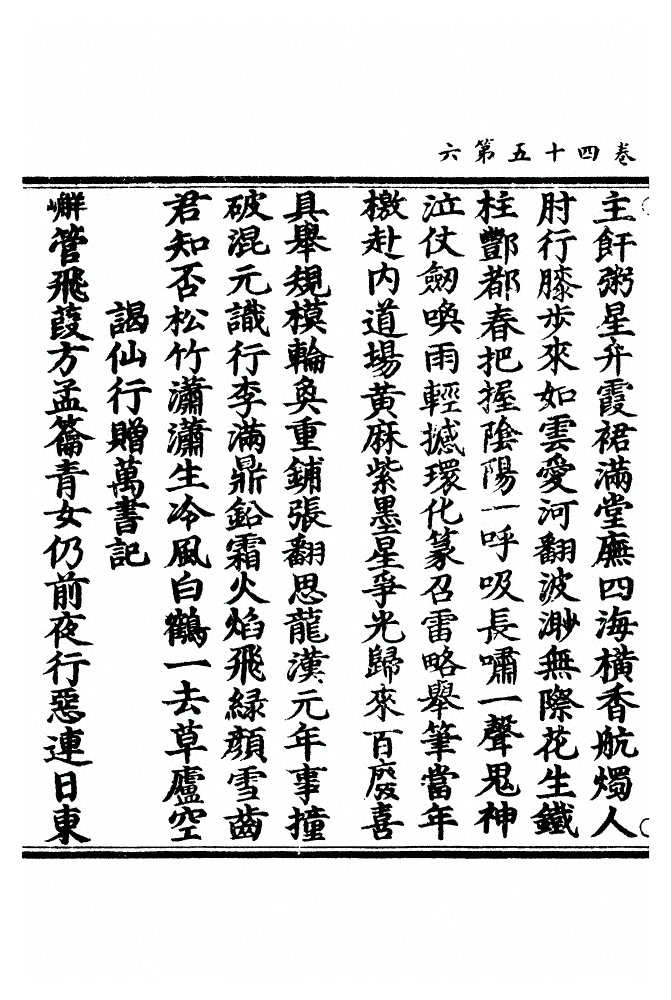 卷四十五第六
主飦粥星弁霞裙滿堂廡四海橫香航燭人
肘行膝步來如雲愛河翻波渺無際花生鐵
柱酆都春把握陰陽一呼吸長嘯一聲鬼神
泣仗劒喚雨輕撼環化篆召雷略舉筆當年
檄赴内道場黄麻紫墨星爭光歸來百廢喜
具舉規模輪奐重鋪張翻思龍漢元年事撞
破混元識行李滿鼎鉛霜火焰飛緑顔雪齒
君知否松竹瀟瀟生冷風白鶴一去草廬空
謁仙行贈萬書記
嶰管飛葭方孟籥青女仍前夜行惡連日東